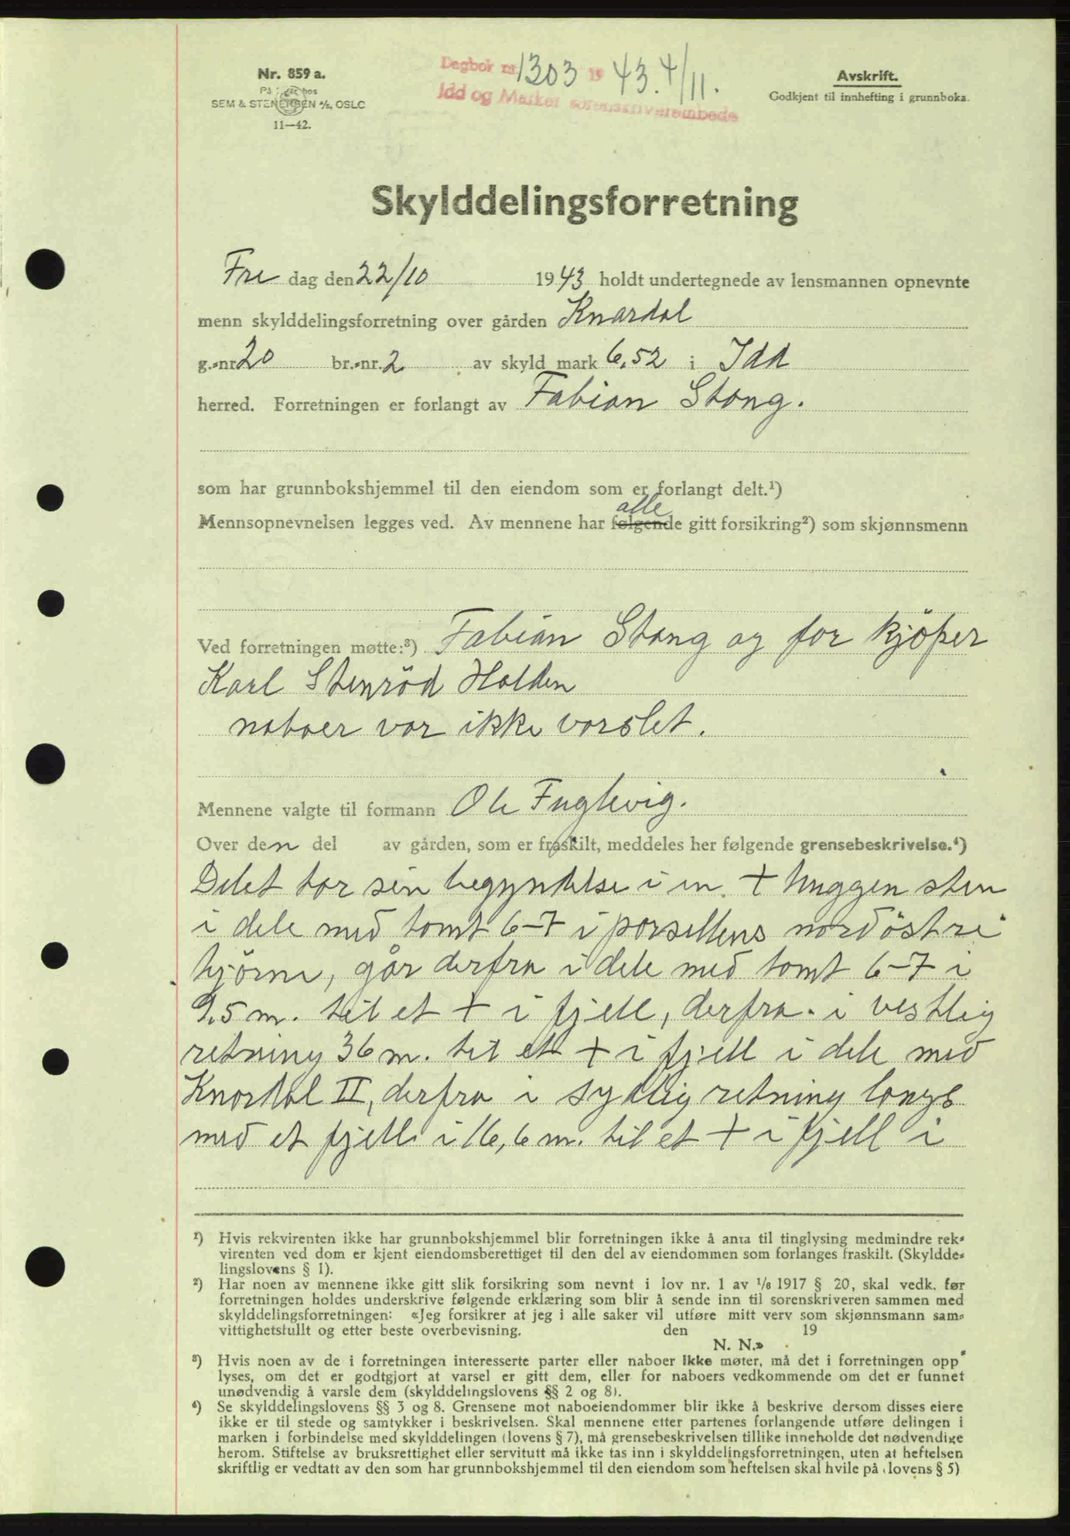 Nr. 859 a.
SEM & STENERSEN A/S, OSLO
11—42.
Dagbok nr. 1303 19 43. 4/11.
Idd og Marker sorenskriverembede
Avskrift.
Godkjent til innhefting i grunnboka.
Skylddelingsforretning
Fre dag den 22/10 1943 holdt undertegnede av lensmannen opnevnte
menn skylddelingsforretning over gården Knardal
g.-nr. 20 br.-nr. 2 av skyld mark 6,52 i Idd
herred. Forretningen er forlangt av Fabian Stang.
som har grunnbokshjemmel til den eiendom som er forlangt delt.¹)
alle
Mennsopnevnelsen legges ved. Av mennene har følgende gitt forsikring²) som skjønnsmenn
Ved forretningen møtte:³) Fabian Stang og for kjöper
Karl Stenröd Halden
naboer var ikke varslet.
Mennene valgte til formann Ole Fuglevig.
Over den del av gården, som er fraskilt, meddeles her følgende grensebeskrivelse.⁴)
Delet tar sin begyndelse i en + huggen sten
i dele med tomt 6-7 i parsellens nordöstre
hjörne, går derfra i dele med tomt 6-7 i
9,5 m. til et + i fjell, derfra i vestlig
retning 36 m. til et + i fjell i dele med
Knardal II, derfra i sydlig retning langs
med et fjell i 16,6 m. til et + i fjell i
¹) Hvis rekvirenten ikke har grunnbokshjemmel blir forretningen ikke å anta til tinglysing medmindre rek-
virenten ved dom er kjent eiendomsberettiget til den del av eiendommen som forlanges fraskilt. (Skyldde-
lingslovens § 1).
²) Har noen av mennene ikke gitt slik forsikring som nevnt i lov nr. 1 av 1/6 1917 § 20, skal vedk. før
forretningen holdes underskrive følgende erklæring som blir å sende inn til sorenskriveren sammen med
skylddelingsforretningen: «Jeg forsikrer at jeg i alle saker vil utføre mitt verv som skjønnsmann sam-
vittighetsfullt og etter beste overbevisning. den 19
N. N.»
³) Hvis noen av de i forretningen interesserte parter eller naboer ikke møter, må det i forretningen opp-
lyses, om det er godtgjort at varsel er gitt dem, eller for naboers vedkommende om det er funnet
unødvendig å varsle dem (skylddelingslovens §§ 2 og 8).
⁴) Se skylddelingslovens §§ 3 og 8. Grensene mot naboeiendommer blir ikke å beskrive dersom disses eiere
ikke er til stede og samtykker i beskrivelsen. Skal mennene etter partenes forlangende utføre delingen i
marken i forbindelse med skylddelingen (lovens § 7), må grensebeskrivelsen tillike inneholde det nødvendige
herom. Stiftelse av bruksrettighet eller servitutt må ikke tas inn i skylddelingsforretningen, uten at heftelsen
skriftlig er vedtatt av den som har grunnbokshjemmel til den eiendom som heftelsen skal hvile på (lovens § 5)